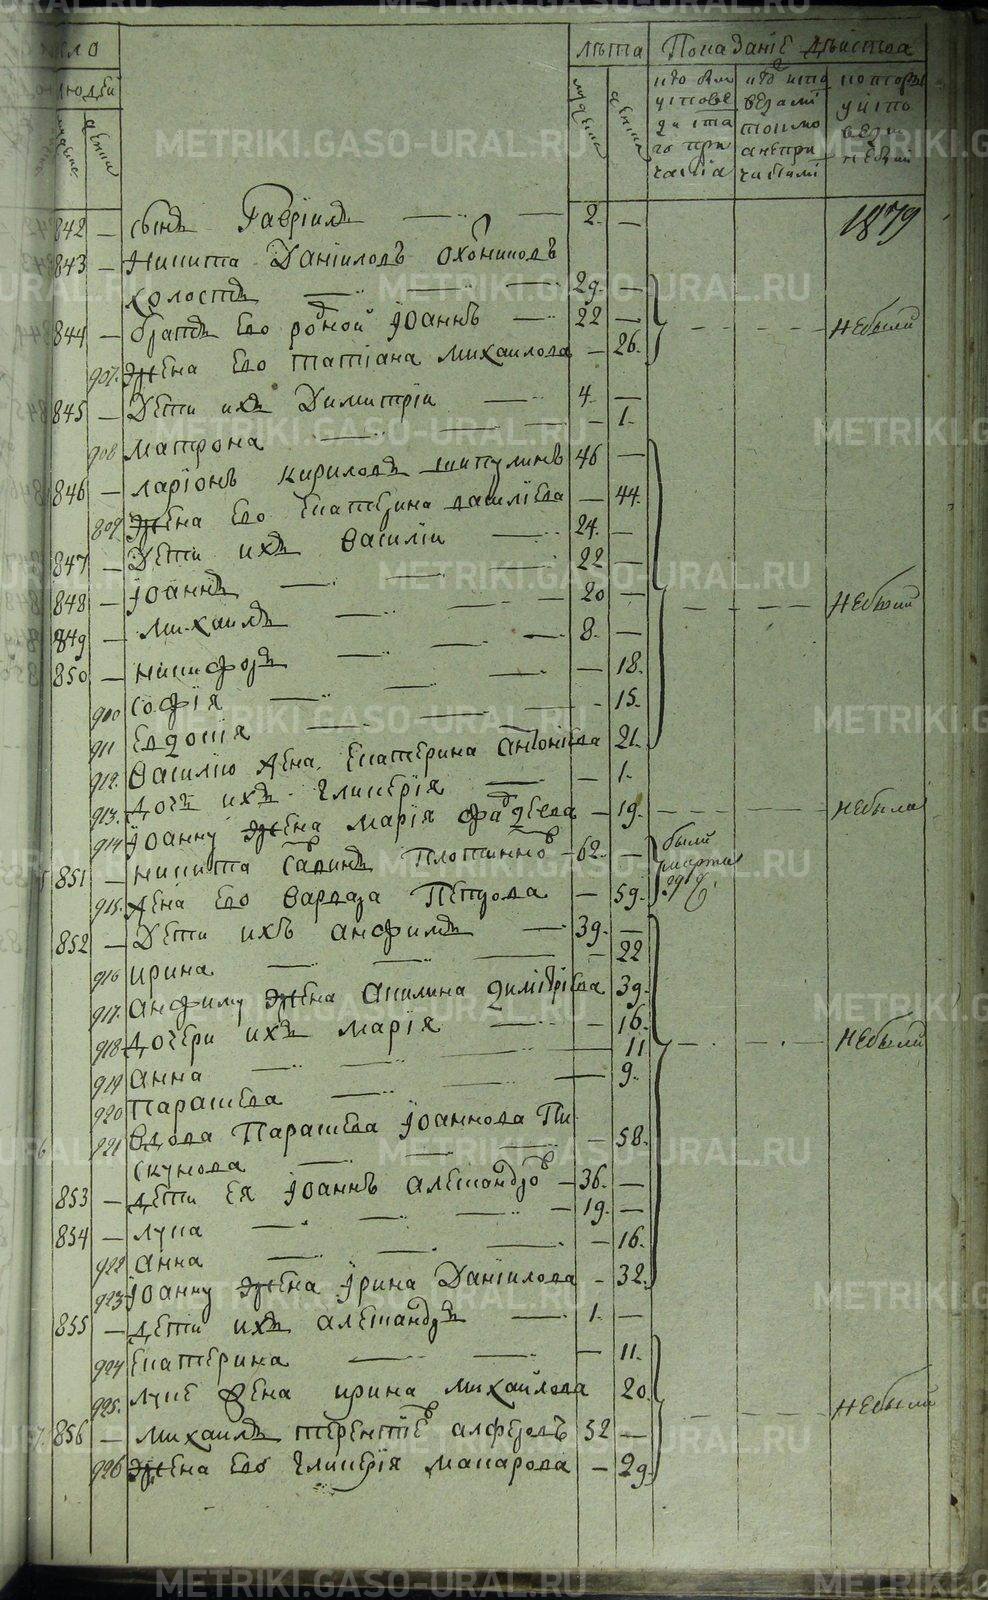 METRIKI.GASO-URAL.RU
число лѣта Показаніе дѣиства
людеи мужеска женска кто был у исповеди и с. причастія
842 — сынъ Гавріилъ — 2. — 1879
843 — Никита Даніиловъ Охониновъ
холостъ — 29. —
844 — братъ Его родной Іоаннъ — 22 — небыли
907. жена Его татіана михаилова — 26.
845 — Дети ихъ Димитріи — 4. —
908 матрона — 1.
846 — ларіонъ кириловъ шипулинъ 46 —
809. жена Его Екатерина василіева — 44.
847 — Дети ихъ Василіи — 24. —
848 — Іоаннъ — 22 — небыли
849 — михаилъ — 20 —
850 — никифоръ — 8. —
900 Софія — 18.
911 Евдокія — 15.
912. Василію жена Екатерина антоніева 21.
913. дочь ихъ гликерія — 1.
914 Іоанну жена Марія фадѣева — 19. небыла
851 — никита Савинъ Плотинновъ 62. — были марта 29 д.
915. жена Его Варвара Петрова — 59.
852 — Дети ихъ анфимъ — 39. —
916 ирина — 22
917. анфиму жена Акилина димітріева 39.
918. дочери ихъ марія — 16. небыли
919 анна — 11
920 парасиева — 9.
921 Вдова Парасиева Іоаннова Пи
скунова — 58.
853 — дети Ея Іоаннъ алеѯандровъ 36. —
854 — лука — 19. —
922 анна — 16.
923 Іоанну жена Ірина Даніилова — 32.
855 — дети ихъ алеѯандръ — 1. —
924 Екатерина — 11.
925. луке жена ирина михайлова 20. небыли
856 — михаилъ терентіевъ алферовъ 52 —
926 жена Его гликерія макарова — 29.